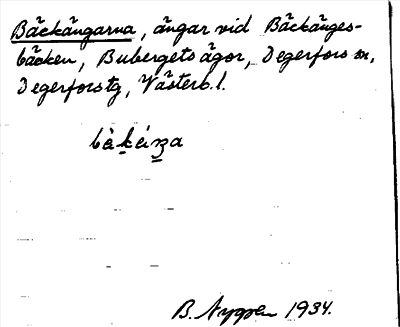 Bäckängarna, ängar vid Bäckänges-
bäcken, Bubergets ägor, Degerfors sn,
Degerforstg, Västerb. l.
B. Nygren 1934.